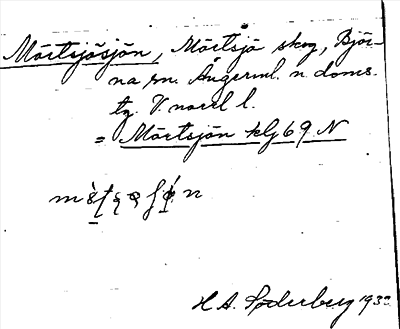 Mörtsjösjön, Mörtsjö skog, Björ-
na sn. Ångerml. n. doms.
tg. V. norrl l.
= Mörtsjön klj 69 N
H A. Söderberg 193